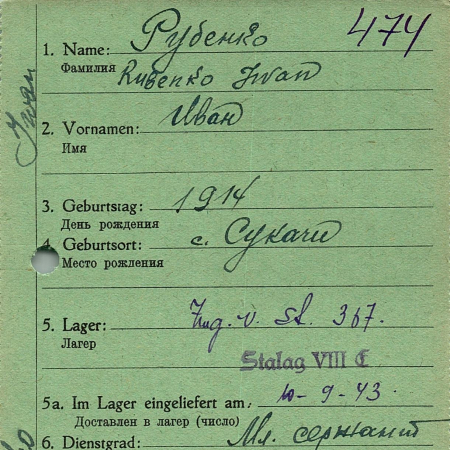 474
1. Name: Рубенко
Фамилия Rubenko Iwan
Иван
2. Vornamen:
Имя
3. Geburtstag: 1914
День рождения
4. Geburtsort: с. Сукачи
Место рождения
5. Lager: Zug. v. St. 367.
Лагер
Stalag VIII C
5a. Im Lager eingeliefert am: 10-9-43.
Доставлен в лагер (число)
6. Dienstgrad: Мл. сержант
Iwan